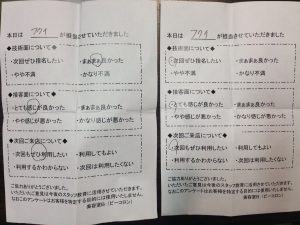 本日は フクイ が担当させていただきました
◆技術面について◆
・次回ぜひ指名したい ・まぁまぁ良かった
・やや不満 ・かなり不満
◆接客面について◆
・とても感じが良かった ・まぁまぁ良かった
・やや感じが悪かった ・かなり感じが悪かった
◆次回ご来店について◆
・次回もぜひ利用したい ・利用してもよい
・利用するかわからない ・次回は利用したくない
ご協力ありがとうございました。
いただいたご意見は今後のスタッフ教育に活用させていただきます。
なおこのアンケートはお客様を特定する目的には使用いたしません。
美容室BJ(ビーコロン)
本日は フクイ が担当させていただきました
◆技術面について◆
・次回ぜひ指名したい ・まぁまぁ良かった
・やや不満 ・かなり不満
◆接客面について◆
・とても感じが良かった ・まぁまぁ良かった
・やや感じが悪かった ・かなり感じが悪かった
◆次回ご来店について◆
・次回もぜひ利用したい ・利用してもよい
・利用するかわからない ・次回は利用したくない
ご協力ありがとうございました。
いただいたご意見は今後のスタッフ教育に活用させていただきます。
なおこのアンケートはお客様を特定する目的には使用いたしません。